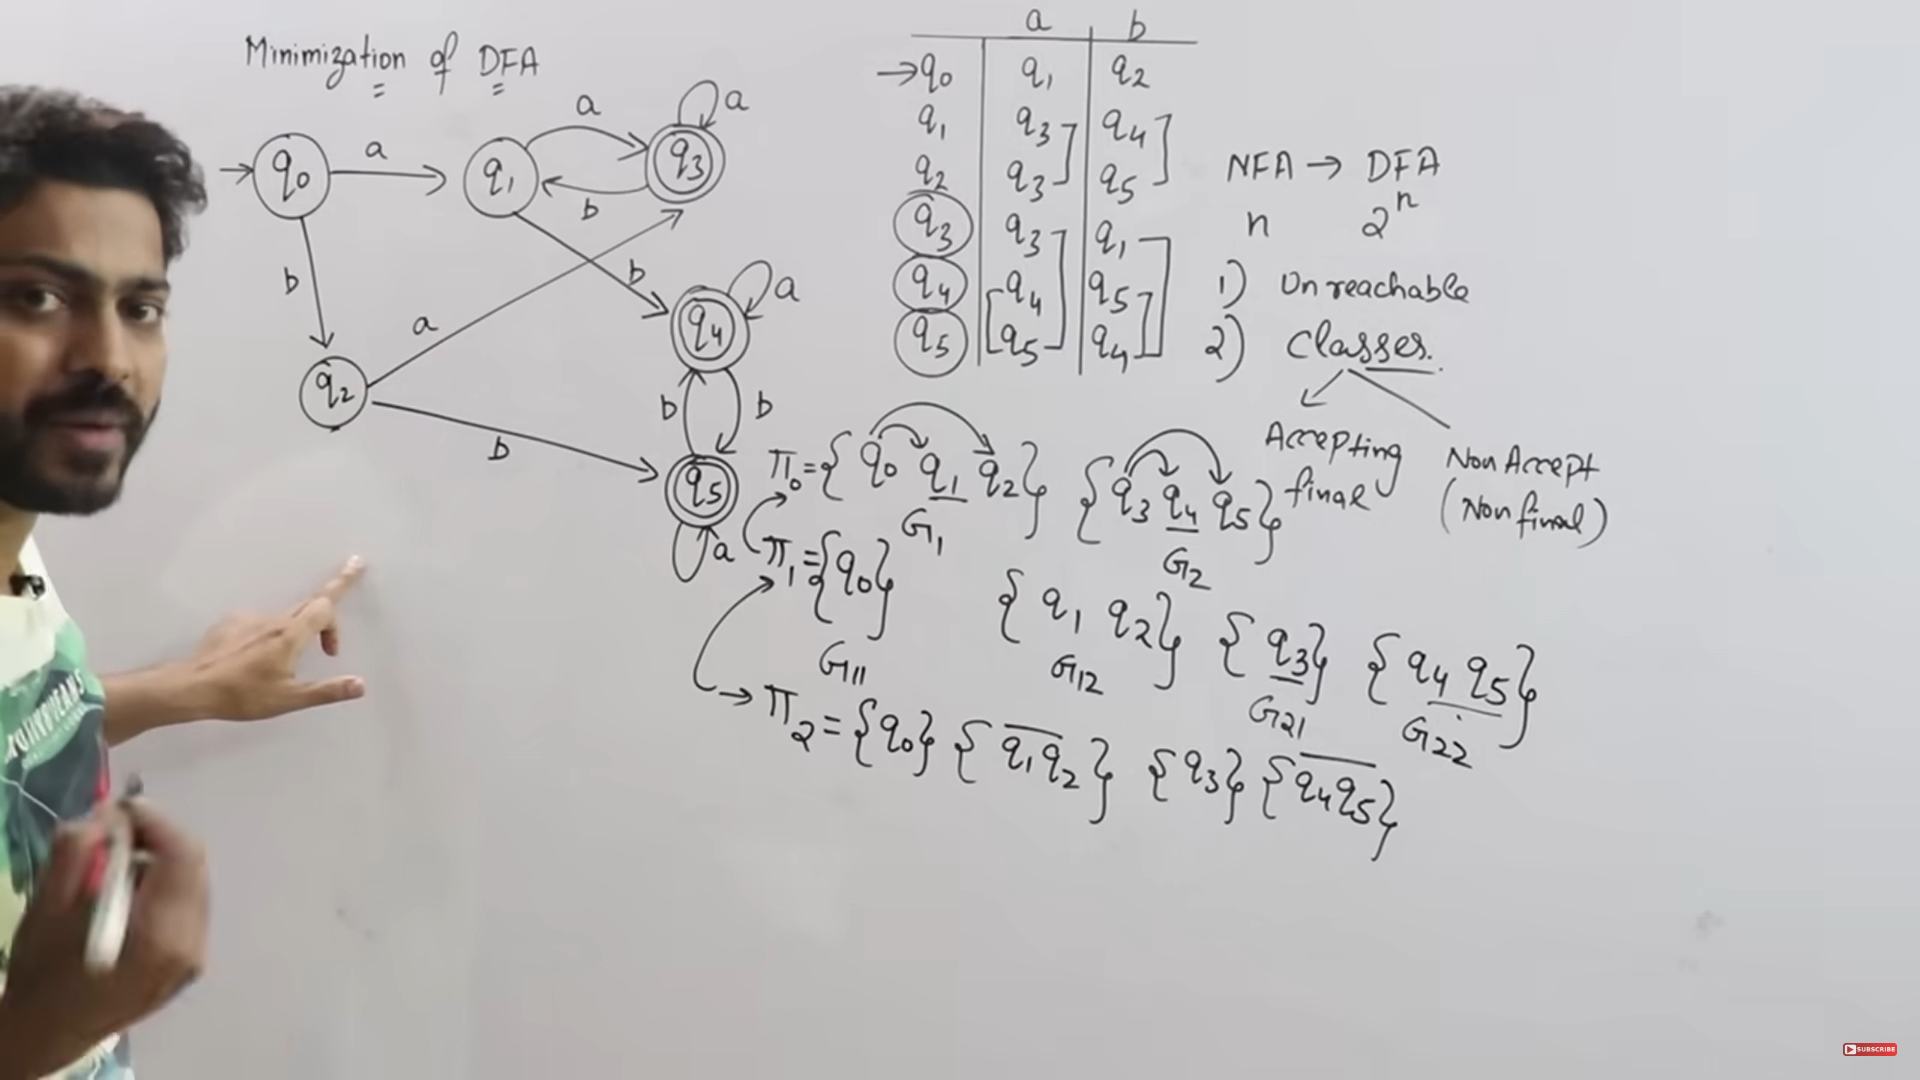 Minimization of DFA
q0
a
q1
a
q3
a
b
b
b
a
q2
q4
a
b
b
b
q5
a
a b
→q0 q1 q2
q1 q3 q4
q2 q3 q5
q3 q3 q1
q4 q4 q5
q5 q5 q4
NFA → DFA
n 2^n
1) Unreachable
2) Classes.
Accepting
final
Non Accept
(Non final)
π0={q0 q1 q2} {q3 q4 q5}
G1 G2
π1={q0} {q1 q2} {q3} {q4 q5}
G11 G12 G21 G22
π2={q0} {q1q2} {q3} {q4q5}
SUBSCRIBE